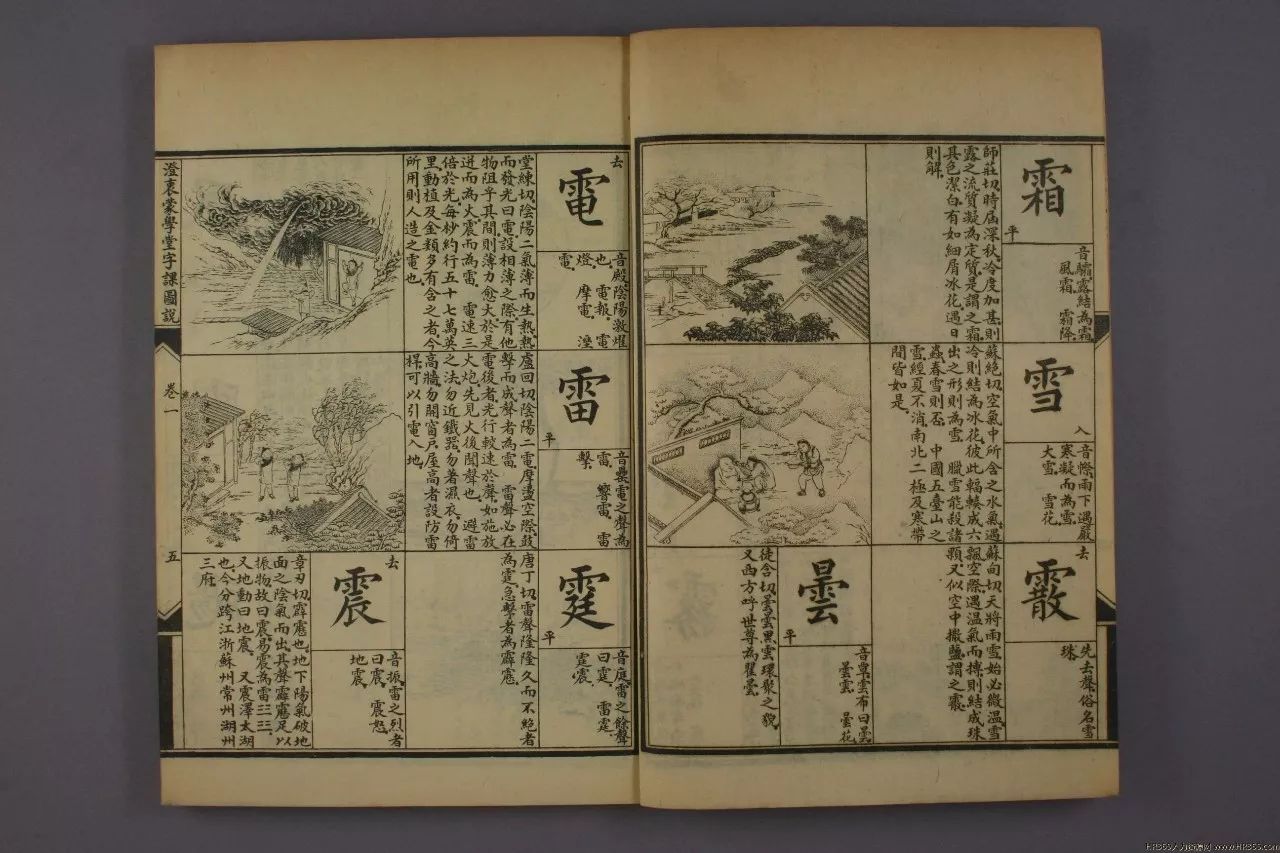 霜
平
音驦露結為霜
風霜 霜降
師莊切時屆深秋冷度加甚則
露之流質凝為定質是謂之霜
其色潔白有如細屑冰花遇日
則解
雪
入
雨下遇嚴
寒凝而為雪
大雪 雪花
蘇絕切空氣中所含之水氣遇
冷則結為冰花彼此輻輳成六
出之形則為雪 臘雪能殺諸
蟲春雪則否 中國五臺山之
雪經夏不消南北二極及寒帶
間皆如是
去
霰
先去聲俗名雪
珠
蘇甸切天將雨雪始必微溫雪
飄空際遇溫氣而摶則結成珠
顆又似空中撒鹽謂之霰
曇
平
音覃雲布曰曇
曇雲 曇花
徒含切曇曇黑雲環聚之貌
又西方呼世尊為瞿曇
去
電
音殿陰陽激燿
也 電報 電
燈 摩電 溼
電
堂練切陰陽二氣薄而生熱熱
而發光曰電設相薄之際有他
物阻乎其間則薄力愈大於是
迸而為火震而為雷 電速三
倍於光每杪約行五十七萬英
里動植及金類多有含之者今
所用則人造之電也
雷
平
音罍電之聲為
雷 響雷 雷
擊
盧回切陰陽二電摩盪空際鼓
擊而成聲者為雷 雷聲必在
電後者光行較速於聲如施放
火炮先見火後聞聲也 避雷
之法勿近鐵器勿著濕衣勿倚
高牆勿開窗戶屋高者設防雷
桿可以引電入地
霆
平
音庭雷之餘聲
曰霆 雷霆
霆震
唐丁切雷聲隆隆久而不絕者
為霆急擊者為霹靂
去
震
音振雷之烈者
曰震 震怒
地震
章刃切霹靂也地下陽氣破地
面之陰氣而出其聲霹靂足以
振物故曰震易震為雷☳☳
又地動曰地震 又震澤太湖
也今分跨江浙蘇州常州湖州
三府
澄衷蒙學堂字課圖說
卷一
五
www.HR365.com